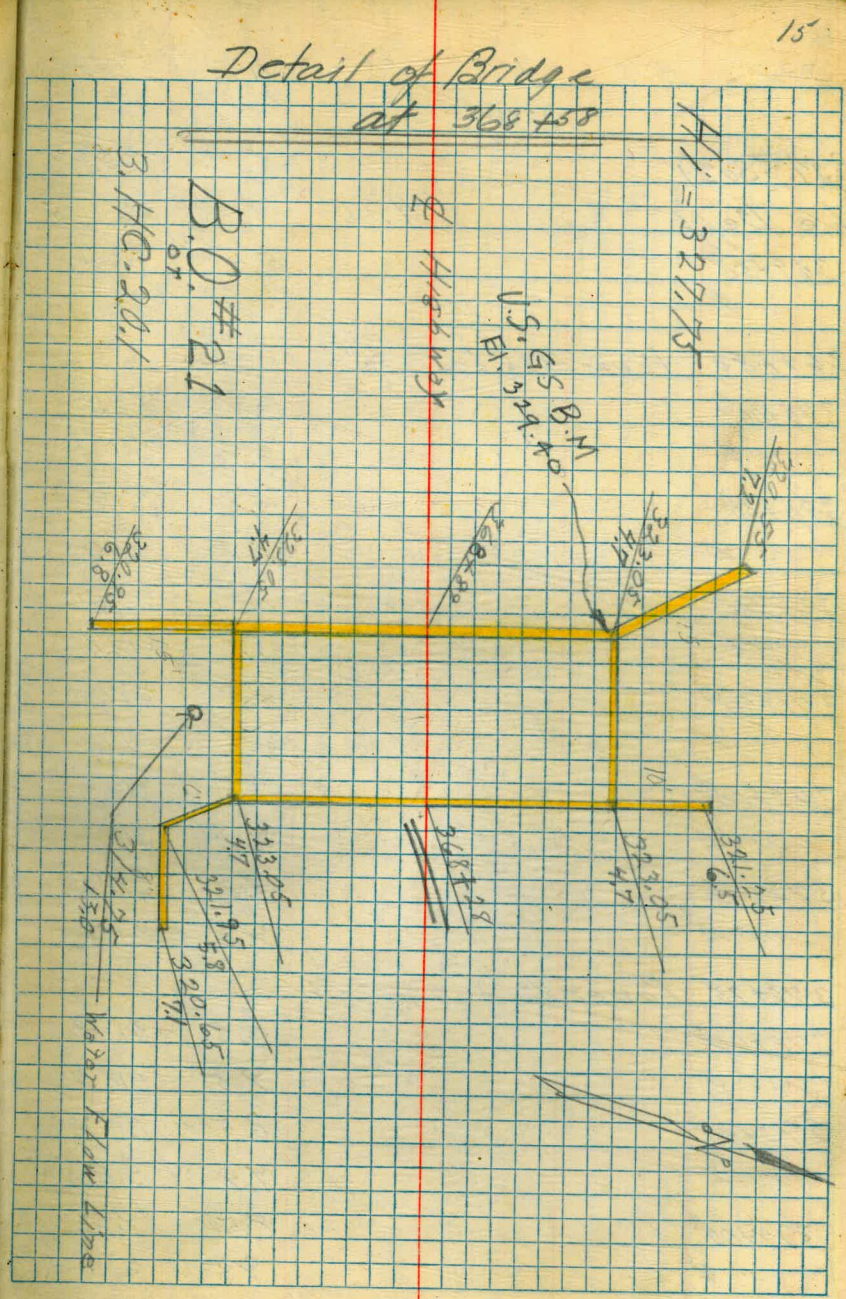 15
Detail of Bridge
at 368+58
Hi = 327.75
B.O. #21
or
3.HC.20.1
℄ Highway
U.S.G.S B.M
El. 329.40
320.55
7.2
323.05
4.7
368+80
323.05
4.7
320.95
6.8
15
15
10'
6'
8'
321.25
6.5
323.05
4.7
323.05
4.7
321.95
5.8
320.65
7.1
314.75
13.0
Water Flow Line
N